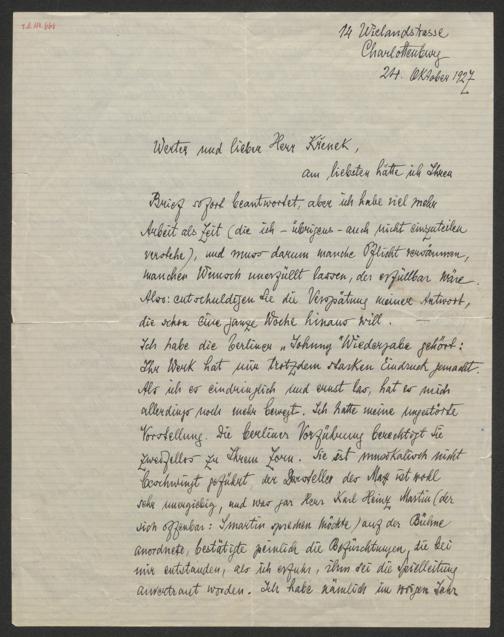 14 Wielandstrasse
Charlottenburg
24. Oktober 1927
Werter und lieber Herr Křenek,
am liebsten hätte ich Ihren
Brief sofort beantwortet, aber ich habe viel mehr
Arbeit als Zeit (die ich – übrigens – auch nicht einzuteilen
verstehe), und muss darum manche Pflicht versäumen,
manchen Wunsch unerfüllt lassen, der erfüllbar wäre.
Also: entschuldigen Sie die Verspätung meiner Antwort,
die schon eine ganze Woche hinaus will.
Ich habe die Berliner „Johnny" Wiedergabe gehört:
Ihr Werk hat mir trotzdem starken Eindruck gemacht.
Als ich es eindringlich und ernst las, hat es mich
allerdings noch mehr bewegt. Ich hatte meine ungestörte
Vorstellung. Die Berliner Vorführung berechtigt Sie
zweifellos zu Ihrem Zorn. Sie ist musikalisch nicht
beschwingt geführt, der Darsteller des Max ist wohl
sehr unergiebig, und was gar Herr Karl Heinz Martin (der
sich offenbar: Smartin sprechen möchte) auf der Bühne
anordnete, bestätigte peinlich die Befürchtungen, die bei
mir entstanden, als ich erfuhr, ihm sei die Spielleitung
anvertraut worden. Ich habe nämlich im vorigen Jahr